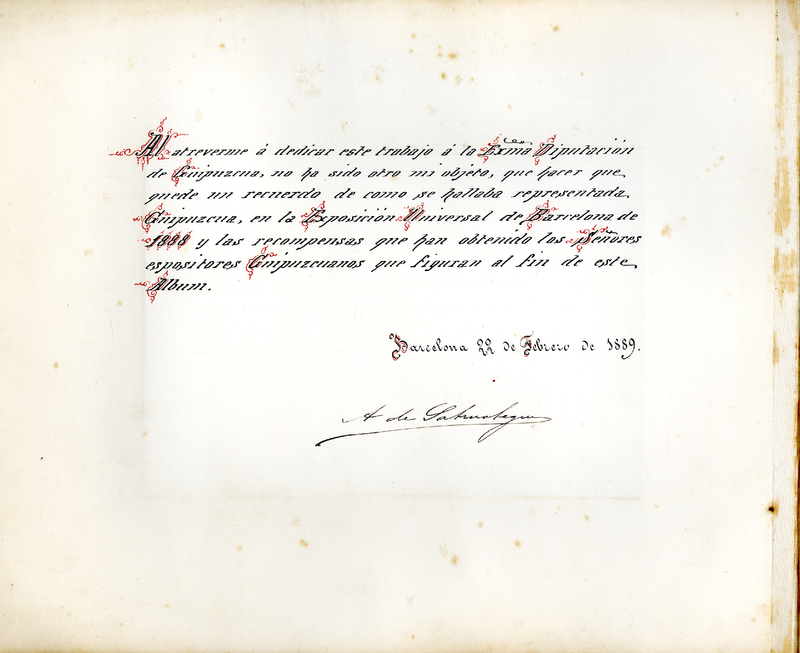 Al atreverme á dedicar este trabajo á la Exma Diputación
de Guipuzcua, no ha sido otro mi objeto, que hacer que
quede un recuerdo de como se hallaba representada
Guipuzcua, en la Exposición Universal de Barcelona de
1888 y las recompensas que han obtenido los Señores
espositores Guipuzcuanos que figuran al fin de este
Album.
Barcelona 22 de Febrero de 1889.
A de Satrustegui